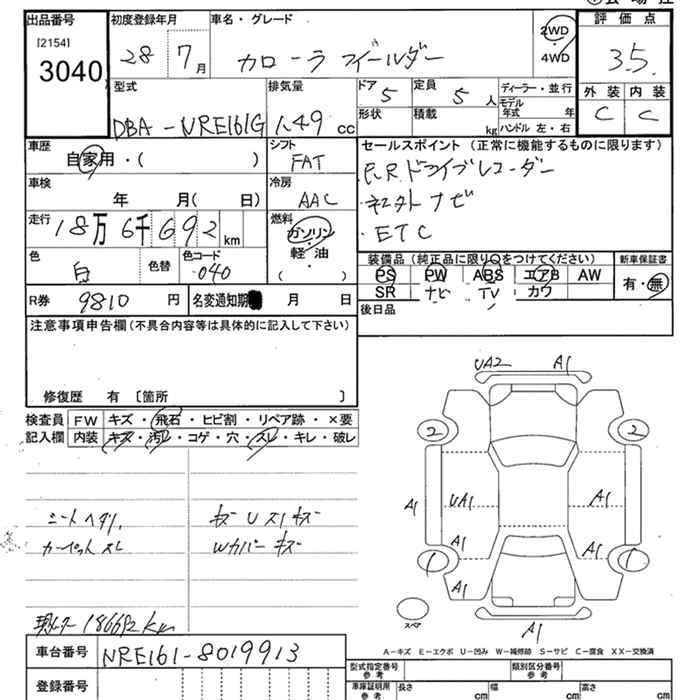 出品番号 初度登録年月 車名・グレード 評価点
[2154]
3040 28 7月 カローラ フィールダー 2WD 4WD 3.5
型式 排気量 ドア 5 定員 5人 ディーラー・並行 外装 内装
DBA-NRE161G 1.49 cc 形状 積載 kg モデル年式 年 C C
ハンドル 左・右
車歴 シフト セールスポイント (正常に機能するものに限ります)
自家用・( ) FAT F,R ドライブレコーダー
車検 冷房
年 月(日) AAC ・ナビ
走行 燃料 ・ETC
18万6千692km ガソリン・軽油・( )
色 色替 色コード 装備品 (純正品に限り○をつけてください) 新車保証書
白 040 PS PW ABS エアB AW 有・無
SR ナビ TV カワ
R券 9810円 名変通知期 月 日 後日品
注意事項申告欄 (不具合内容等は具体的に記入して下さい)
修復歴 有 [箇所 ]
UA2 A1
検査員 FW キズ・飛石・ヒビ割・リペア跡・×要
記入欄 内装 キズ・汚レ・コゲ・穴・スレ・キレ・破レ
2 2
A1 UA1 A1 A1
シートヘタリ
カーペットスレ Wカバーキズ
A1 A1
1 1
A1
スペア
A1
186692km
A-キズ E-エクボ U-凹み W-補修跡 S-サビ C-腐食 XX-交換済
車台番号 NRE161-8019913
型式指定番号 参考 類別区分番号 参考
登録番号 車庫証明用 参考 長さ cm 幅 cm 高さ cm